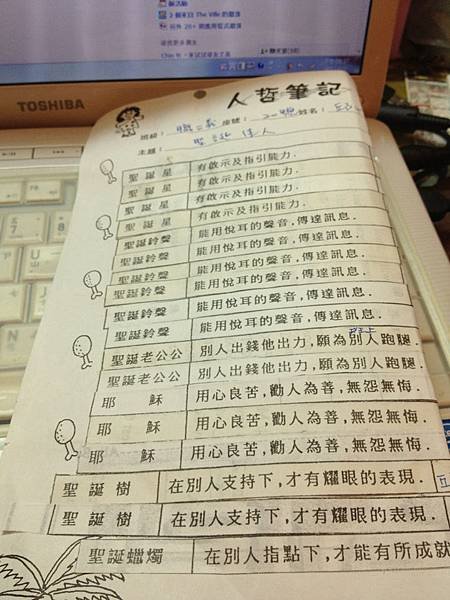 TOSHIBA
人哲筆記
班級： 座號： 姓名：
主題： 聖誕佳人
聖誕星 有啟示及指引能力.
聖誕星 有啟示及指引能力.
聖誕星 有啟示及指引能力.
聖誕星 有啟示及指引能力.
聖誕鈴聲 能用悅耳的聲音,傳達訊息.
聖誕鈴聲 能用悅耳的聲音,傳達訊息.
聖誕鈴聲 能用悅耳的聲音,傳達訊息.
聖誕鈴聲 能用悅耳的聲音,傳達訊息.
聖誕鈴聲 能用悅耳的聲音,傳達訊息.
聖誕老公公 別人出錢他出力,願為別人跑腿.
聖誕老公公 別人出錢他出力,願為別人跑腿.
耶穌 用心良苦,勸人為善,無怨無悔.
耶穌 用心良苦,勸人為善,無怨無悔.
耶穌 用心良苦,勸人為善,無怨無悔.
聖誕樹 在別人支持下,才有耀眼的表現.
聖誕樹 在別人支持下,才有耀眼的表現.
聖誕蠟燭 在別人指點下,才能有所成就